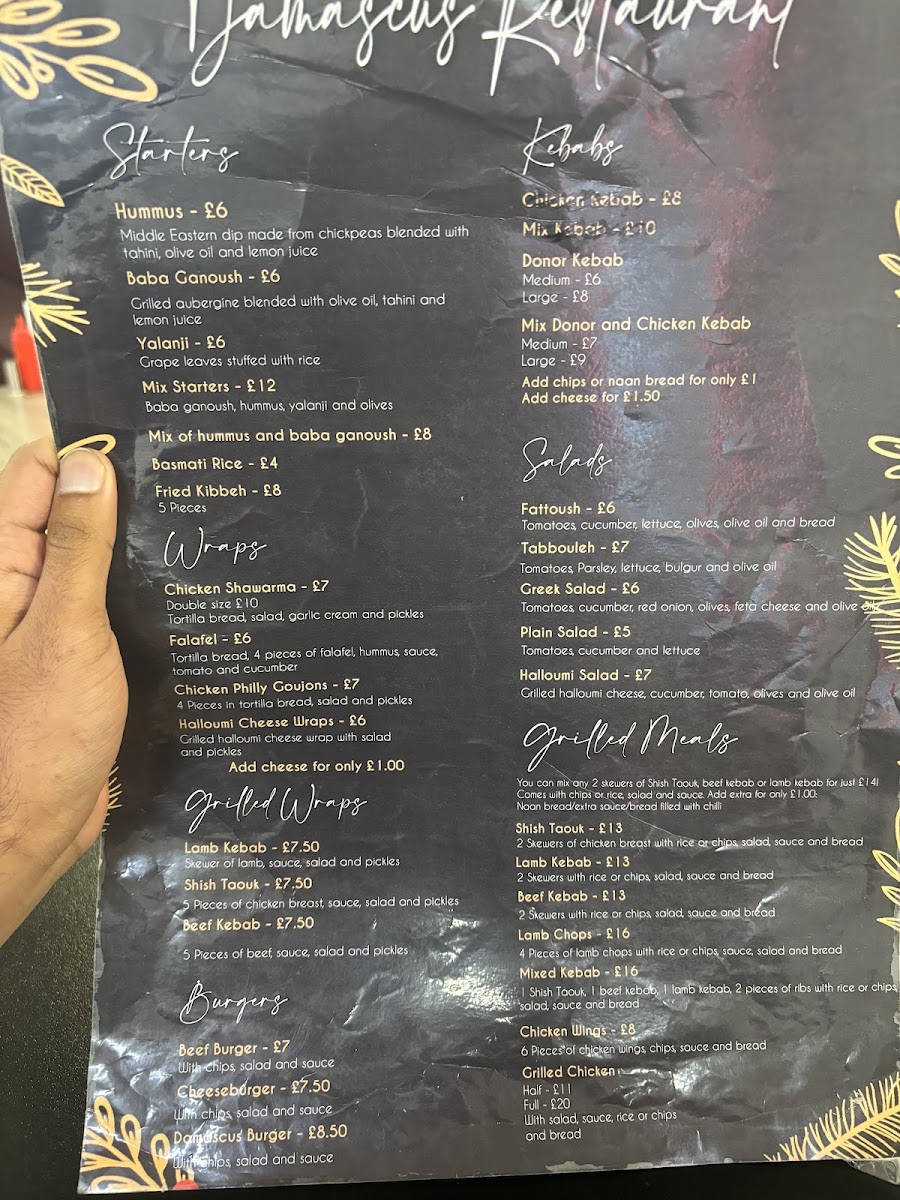 Damascus Restaurant
Starters
Hummus - £6
Middle Eastern dip made from chickpeas blended with
tahini, olive oil and lemon juice
Baba Ganoush - £6
Grilled aubergine blended with olive oil, tahini and
lemon juice
Yalanji - £6
Grape leaves stuffed with rice
Mix Starters - £12
Baba ganoush, hummus, yalanji and olives
Mix of hummus and baba ganoush - £8
Basmati Rice - £4
Fried Kibbeh - £8
5 Pieces
Wraps
Chicken Shawarma - £7
Double size £10
Tortilla bread, salad, garlic cream and pickles
Falafel - £6
Tortilla bread, 4 pieces of falafel, hummus, sauce,
tomato and cucumber
Chicken Philly Goujons - £7
4 Pieces in tortilla bread, salad and pickles
Halloumi Cheese Wraps - £6
Grilled halloumi cheese wrap with salad
and pickles
Add cheese for only £1.00
Grilled Wraps
Lamb Kebab - £7.50
Skewer of lamb, sauce, salad and pickles
Shish Taouk - £7.50
5 Pieces of chicken breast, sauce, salad and pickles
Beef Kebab - £7.50
5 Pieces of beef, sauce, salad and pickles
Burgers
Beef Burger - £7
With chips, salad and sauce
Cheeseburger - £7.50
With chips, salad and sauce
Damascus Burger - £8.50
With chips, salad and sauce
Kebabs
Chicken Kebab - £8
Mix Kebab - £10
Donor Kebab
Medium - £6
Large - £8
Mix Donor and Chicken Kebab
Medium - £7
Large - £9
Add chips or naan bread for only £1
Add cheese for £1.50
Salads
Fattoush - £6
Tomatoes, cucumber, lettuce, olives, olive oil and bread
Tabbouleh - £7
Tomatoes, Parsley, lettuce, bulgur and olive oil
Greek Salad - £6
Tomatoes, cucumber, red onion, olives, feta cheese and olive oil
Plain Salad - £5
Tomatoes, cucumber and lettuce
Halloumi Salad - £7
Grilled halloumi cheese, cucumber, tomato, olives and olive oil
Grilled Meals
You can mix any 2 skewers of Shish Taouk, beef kebab or lamb kebab for just £14!
Comes with chips or rice, salad and sauce. Add extra for only £1.00:
Naan bread/extra sauce/bread filled with chilli
Shish Taouk - £13
2 Skewers of chicken breast with rice or chips, salad, sauce and bread
Lamb Kebab - £13
2 Skewers with rice or chips, salad, sauce and bread
Beef Kebab - £13
2 Skewers with rice or chips, salad, sauce and bread
Lamb Chops - £16
4 Pieces of lamb chops with rice or chips, sauce, salad and bread
Mixed Kebab - £16
1 Shish Taouk, 1 beef kebab, 1 lamb kebab, 2 pieces of ribs with rice or chips,
salad, sauce and bread
Chicken Wings - £8
6 Pieces of chicken wings, chips, sauce and bread
Grilled Chicken
Half - £11
Full - £20
With salad, sauce, rice or chips
and bread